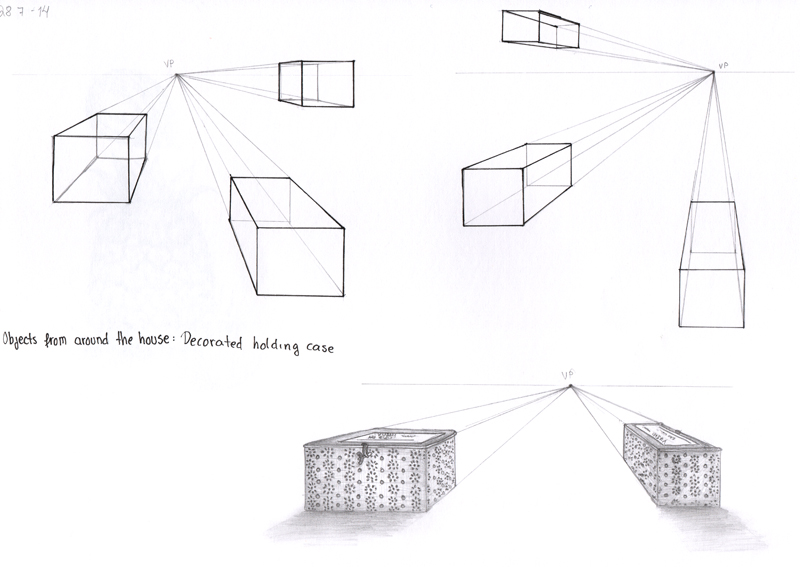 28 7 -14
VP
VP
Objects from around the house: Decorated holding case
VP